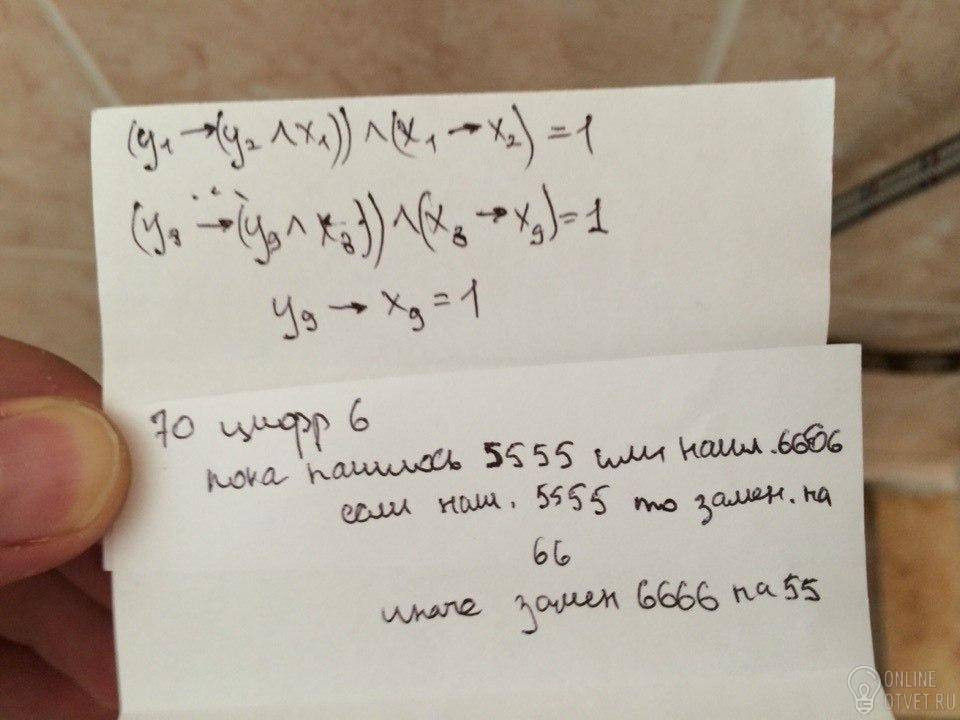 (y₁ → (y₂ ∧ x₁)) ∧ (x₁ → x₂) = 1
...
(y₈ → (y₉ ∧ x₈)) ∧ (x₈ → x₉) = 1
y₉ → x₉ = 1
70 цифр 6
пока нашлось 5555 или нашл. 6666
если наш. 5555 то замен. на
66
иначе замен 6666 на 55
ONLINE
OTVET.RU